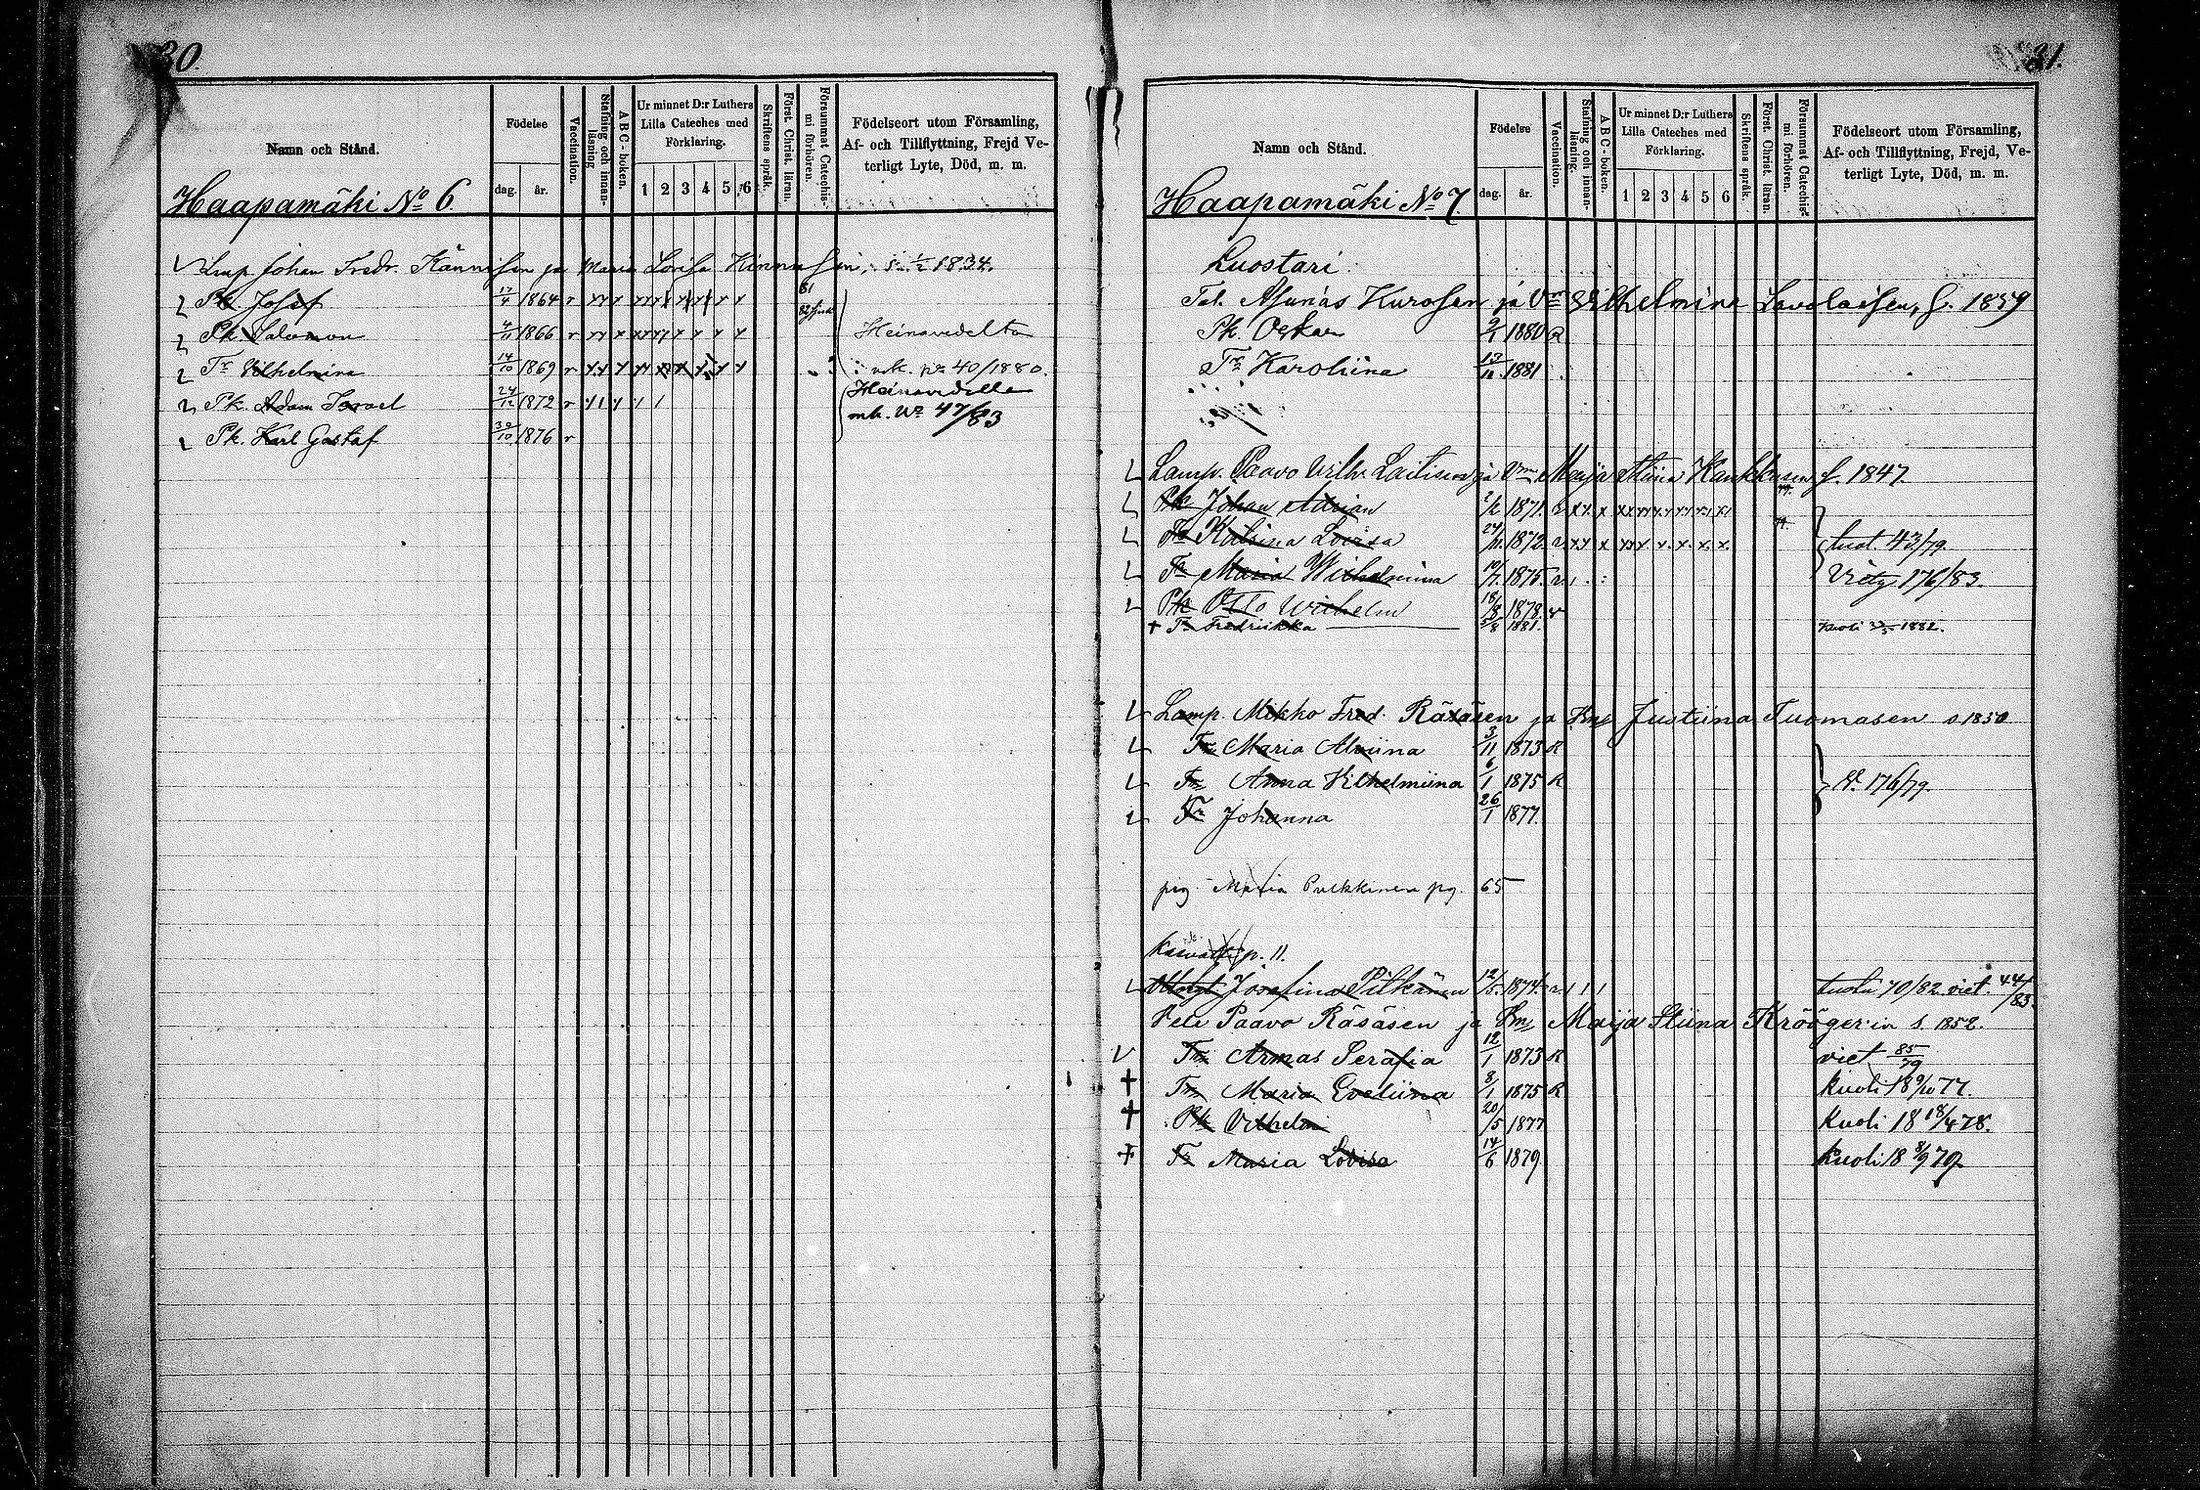 30.
Namn och Stånd.
Födelse
dag. år.
Vaccination.
Stafning och innan-läsning
ABC-boken.
Ur minnet D:r Luthers Lilla Cateches med Förklaring.
1 2 3 4 5 6
Skriftens språk.
Först. Christ. läran.
Försummat Catechis-mi förhören.
Födelseort utom Församling, Af- och Tillflyttning, Frejd Ve-terligt Lyte, Död, m. m.
Haapamäki No 6.
Johan Fredr. ja Maria Lovisa 1834.
Pk Josef 17/4 1864 r
Pk. Salomon 1866 r Heinävedelta
Tr Vilhelmina 14/10 1869 r mk. No 40/1880.
Pk. Adam Israel 24/12 1872 r Heinävedelle
mk. No 47/83
Pk. Karl Gustaf 30/10 1876 r
31.
Namn och Stånd.
Födelse
dag. år.
Vaccination.
Stafning och innan-läsning.
ABC-boken.
Ur minnet D:r Luthers Lilla Cateches med Förklaring.
1 2 3 4 5 6
Skriftens språk.
Först. Christ. läran.
Försummat Catechis-mi förhören.
Födelseort utom Församling, Af- och Tillflyttning, Frejd, Ve-terligt Lyte, Död, m. m.
Haapamäki No 7.
Luostari
Kurosen ja Vm Vilhelmina Savolaisen, S. 1859
Pk. Oskar 1880 R
Tr Karoliina 13/12 1881
Lamp. Paavo Vilh. Laitisen ja Vm Maija Stiina f. 1847.
Pk Johan Adrian 2/2 1871. r
Tr Lovisa 24/11 1872. r 43/79.
Tr Maria Wilhelmina 10/7 1875. r Viety 176/83.
Pk Otto Wilhelm 18/8 1878. r
+ Tr Fredriikka 1881. Kuoli 1882.
Lamp. Mikko Fred. Räsäsen ja Vm Justiina Tuomasen s 1850
Tr Maria Alviina 3/11 1873 R
Tr Anna Vilhelmiina 6/1 1875 R V. 176/79.
Tr Johanna 26/1 1877.
pig. Maria Pulkkinen pg. 65
p. 11.
Josefina Pitkänen 12/5 1874 r tuotu 70/82 viet. 44/83.
Veli Paavo Räsäsen ja Vm Maija Stiina Krööger:in s. 1852.
Tr Armas Serafia 12/1 1873 R viet 85/79
+ Tr Maria Eveliina 8/1 1875 R kuoli 18 9/10 77.
+ Pk Vilhelm 20/5 1877 kuoli 18 18/4 78.
+ Tr Maria Lovisa 14/6 1879. kuoli 18 8/9 79